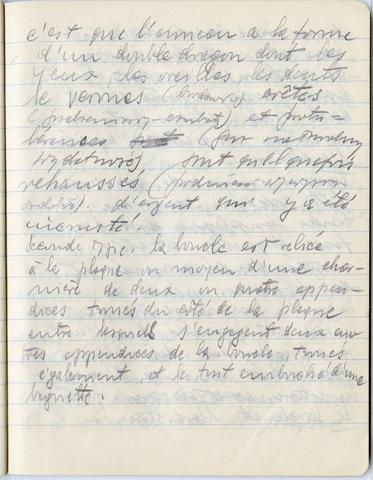 c'est que l'anneau a la forme
d'un double dragon dont les
yeux, les oreilles, les dents
le vermes arêtes
et protu-
bérances (par
wydatnie) sont quelquefois
rehaussés
d'argent qui y a été
incrusté.
Seconde type. la boucle est reliée
à la plaque au moyen d'une char-
nière de deux ou quatre appen-
dices troués du côté de la plaque
entre lesquels s'engagent deux au-
tres appendices de la boucle, troués
également, et le tout embroché d'une
baguette.